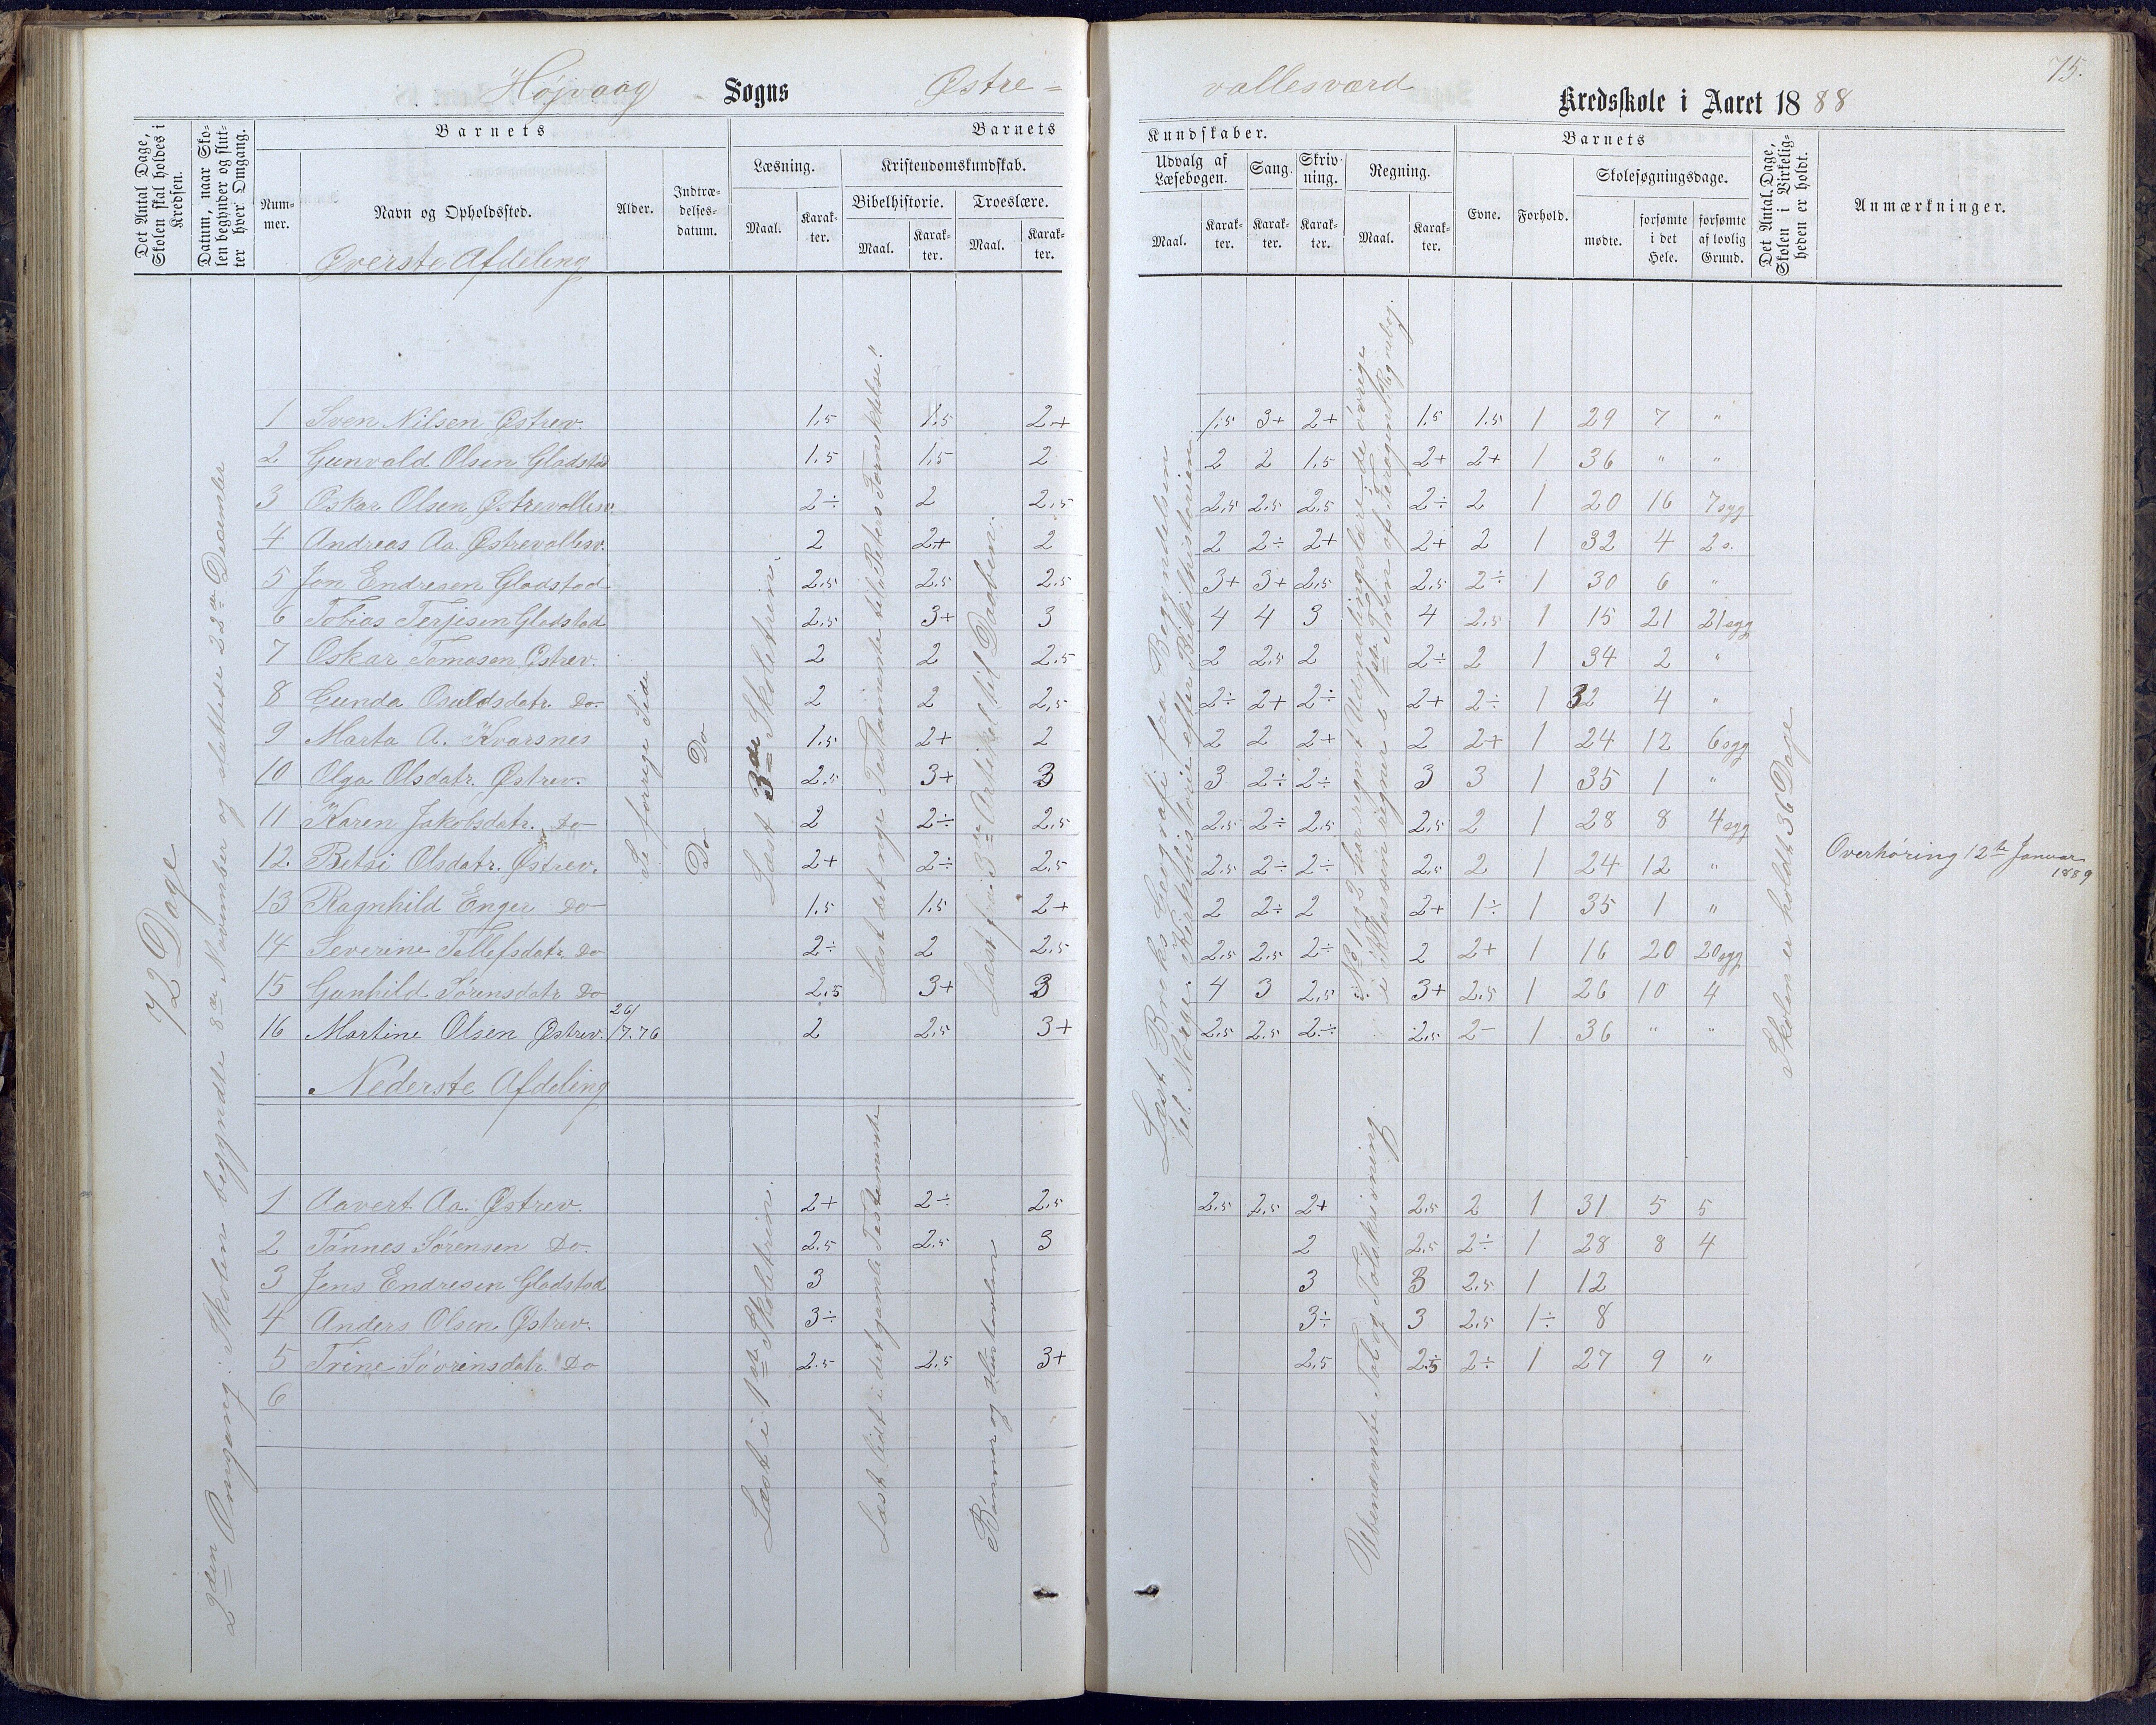 Højvaag Sogns Østre=
vallesværd Kredsskole i Aaret 1888
75.
Det Antal Dage, Skolen skal holdes i Kredsen.
Datum, naar Skolen begynder og slutter hver Omgang.
Barnets
Nummer.
Navn og Opholdssted.
Alder.
Indtrædelsesdatum.
Barnets
Læsning.
Maal.
Karakter.
Kristendomskundskab.
Bibelhistorie.
Maal.
Karakter.
Troeslære.
Maal.
Karakter.
Kundskaber.
Udvalg af Læsebogen.
Maal.
Karakter.
Sang.
Karakter.
Skrivning.
Karakter.
Regning.
Maal.
Karakter.
Barnets
Evne.
Forhold.
Skolesøgningsdage.
mødte.
forsømte i det Hele.
forsømte af lovlig Grund.
Det Antal Dage, Skolen i Virkeligheden er holdt.
Anmærkninger.
Øverste Afdeling
72 Dage
2den Omgang. Skolen begyndte 8de November og sluttede 22de Desember
Se forrige Side
Do Do
Læst 3de Skoletrin.
Læst det nye Testamente til "Peters Fornektelse".
Læst fra 3de Artikel til Daaben.
Læst Broks Geografi fra Begyndelsen
til Norge. Kirkehistorie efter Bibelhistorien.
No 1 og 2 har regnet Udmaalingslære, de øvrige
i Klassen regner i 1ste Trin af Feragens Regnebog.
Skolen er holdt 36 Dage
Overhøring 12te Januar 1889
1 Sven Nilsen Østrev. 1.5 1.5 2+ 1.5 3+ 2+ 1.5 1.5 1 29 7 "
2 Gunvald Olsen Gladstad 1.5 1.5 2 2 2 1.5 2+ 2+ 1 36 " "
3 Oskar Olsen Østrevallesv. 2÷ 2 2.5 2.5 2.5 2.5 2÷ 2 1 20 16 7 syg
4 Andreas Aa. Østrevallesv. 2 2+ 2 2 2÷ 2+ 2+ 2 1 32 4 2 s.
5 Jon Endresen Gladstad 2.5 2.5 2.5 3+ 3+ 2.5 2.5 2÷ 1 30 6 "
6 Tobias Terjesen Gladstad 2.5 3+ 3 4 4 3 4 2.5 1 15 21 21 syg
7 Oskar Tomasen Østrev. 2 2 2.5 2 2.5 2 2÷ 2 1 34 2 "
8 Gunda Osuldsdatr. Do. 2 2 2.5 2÷ 2+ 2÷ 2+ 2÷ 1 32 4 "
9 Marta A. Kvarsnes 1.5 2+ 2 2 2 2+ 2 2+ 1 24 12 6 syg
10 Olga Olsdatr. Østrev. 2.5 3+ 3 3 2÷ 2÷ 3 3 1 35 1 "
11 Karen Jakobsdatr. Do 2 2÷ 2.5 2.5 2÷ 2.5 2.5 2 1 28 8 4 syg
12. Betsi Olsdatr. Østrev. 2+ 2÷ 2.5 2.5 2÷ 2÷ 2.5 2 1 24 12 "
13 Ragnhild Enger Do 1.5 1.5 2+ 2 2÷ 2 2+ 1÷ 1 35 1 "
14 Severine Tellefsdatr. Do 2÷ 2 2.5 2.5 2.5 2÷ 2 2+ 1 16 20 20 syg
15 Gunhild Sørensdatr. Do 2.5 3+ 3 4 3 2.5 3+ 2.5 1 26 10 4
16 Martine Olsen Østrev. 26/7.76 2 2.5 3+ 2.5 2.5 2÷ 2.5 2- 1 36 " "
Nederste Afdeling
Læst i 1ste Skoletrin.
Læst lidt i det gamle Testamente
Bønner og Hustavlen
Ubenævnte Tal og Talskrivning.
1 Aavert Aa. Østrev. 2+ 2÷ 2.5 2.5 2.5 2+ 2.5 2 1 31 5 5
2 Tønnes Sørensen Do. 2.5 2.5 3 2 2.5 2÷ 1 28 8 4
3 Jens Endresen Gladstad 3 3 3 2.5 1 12
4 Anders Olsen Østrev. 3÷ 3÷ 3 2.5 1÷ 8
5 Trine Sørensdatr. Do 2.5 2.5 3+ 2.5 2.5 2÷ 1 27 9 "
6